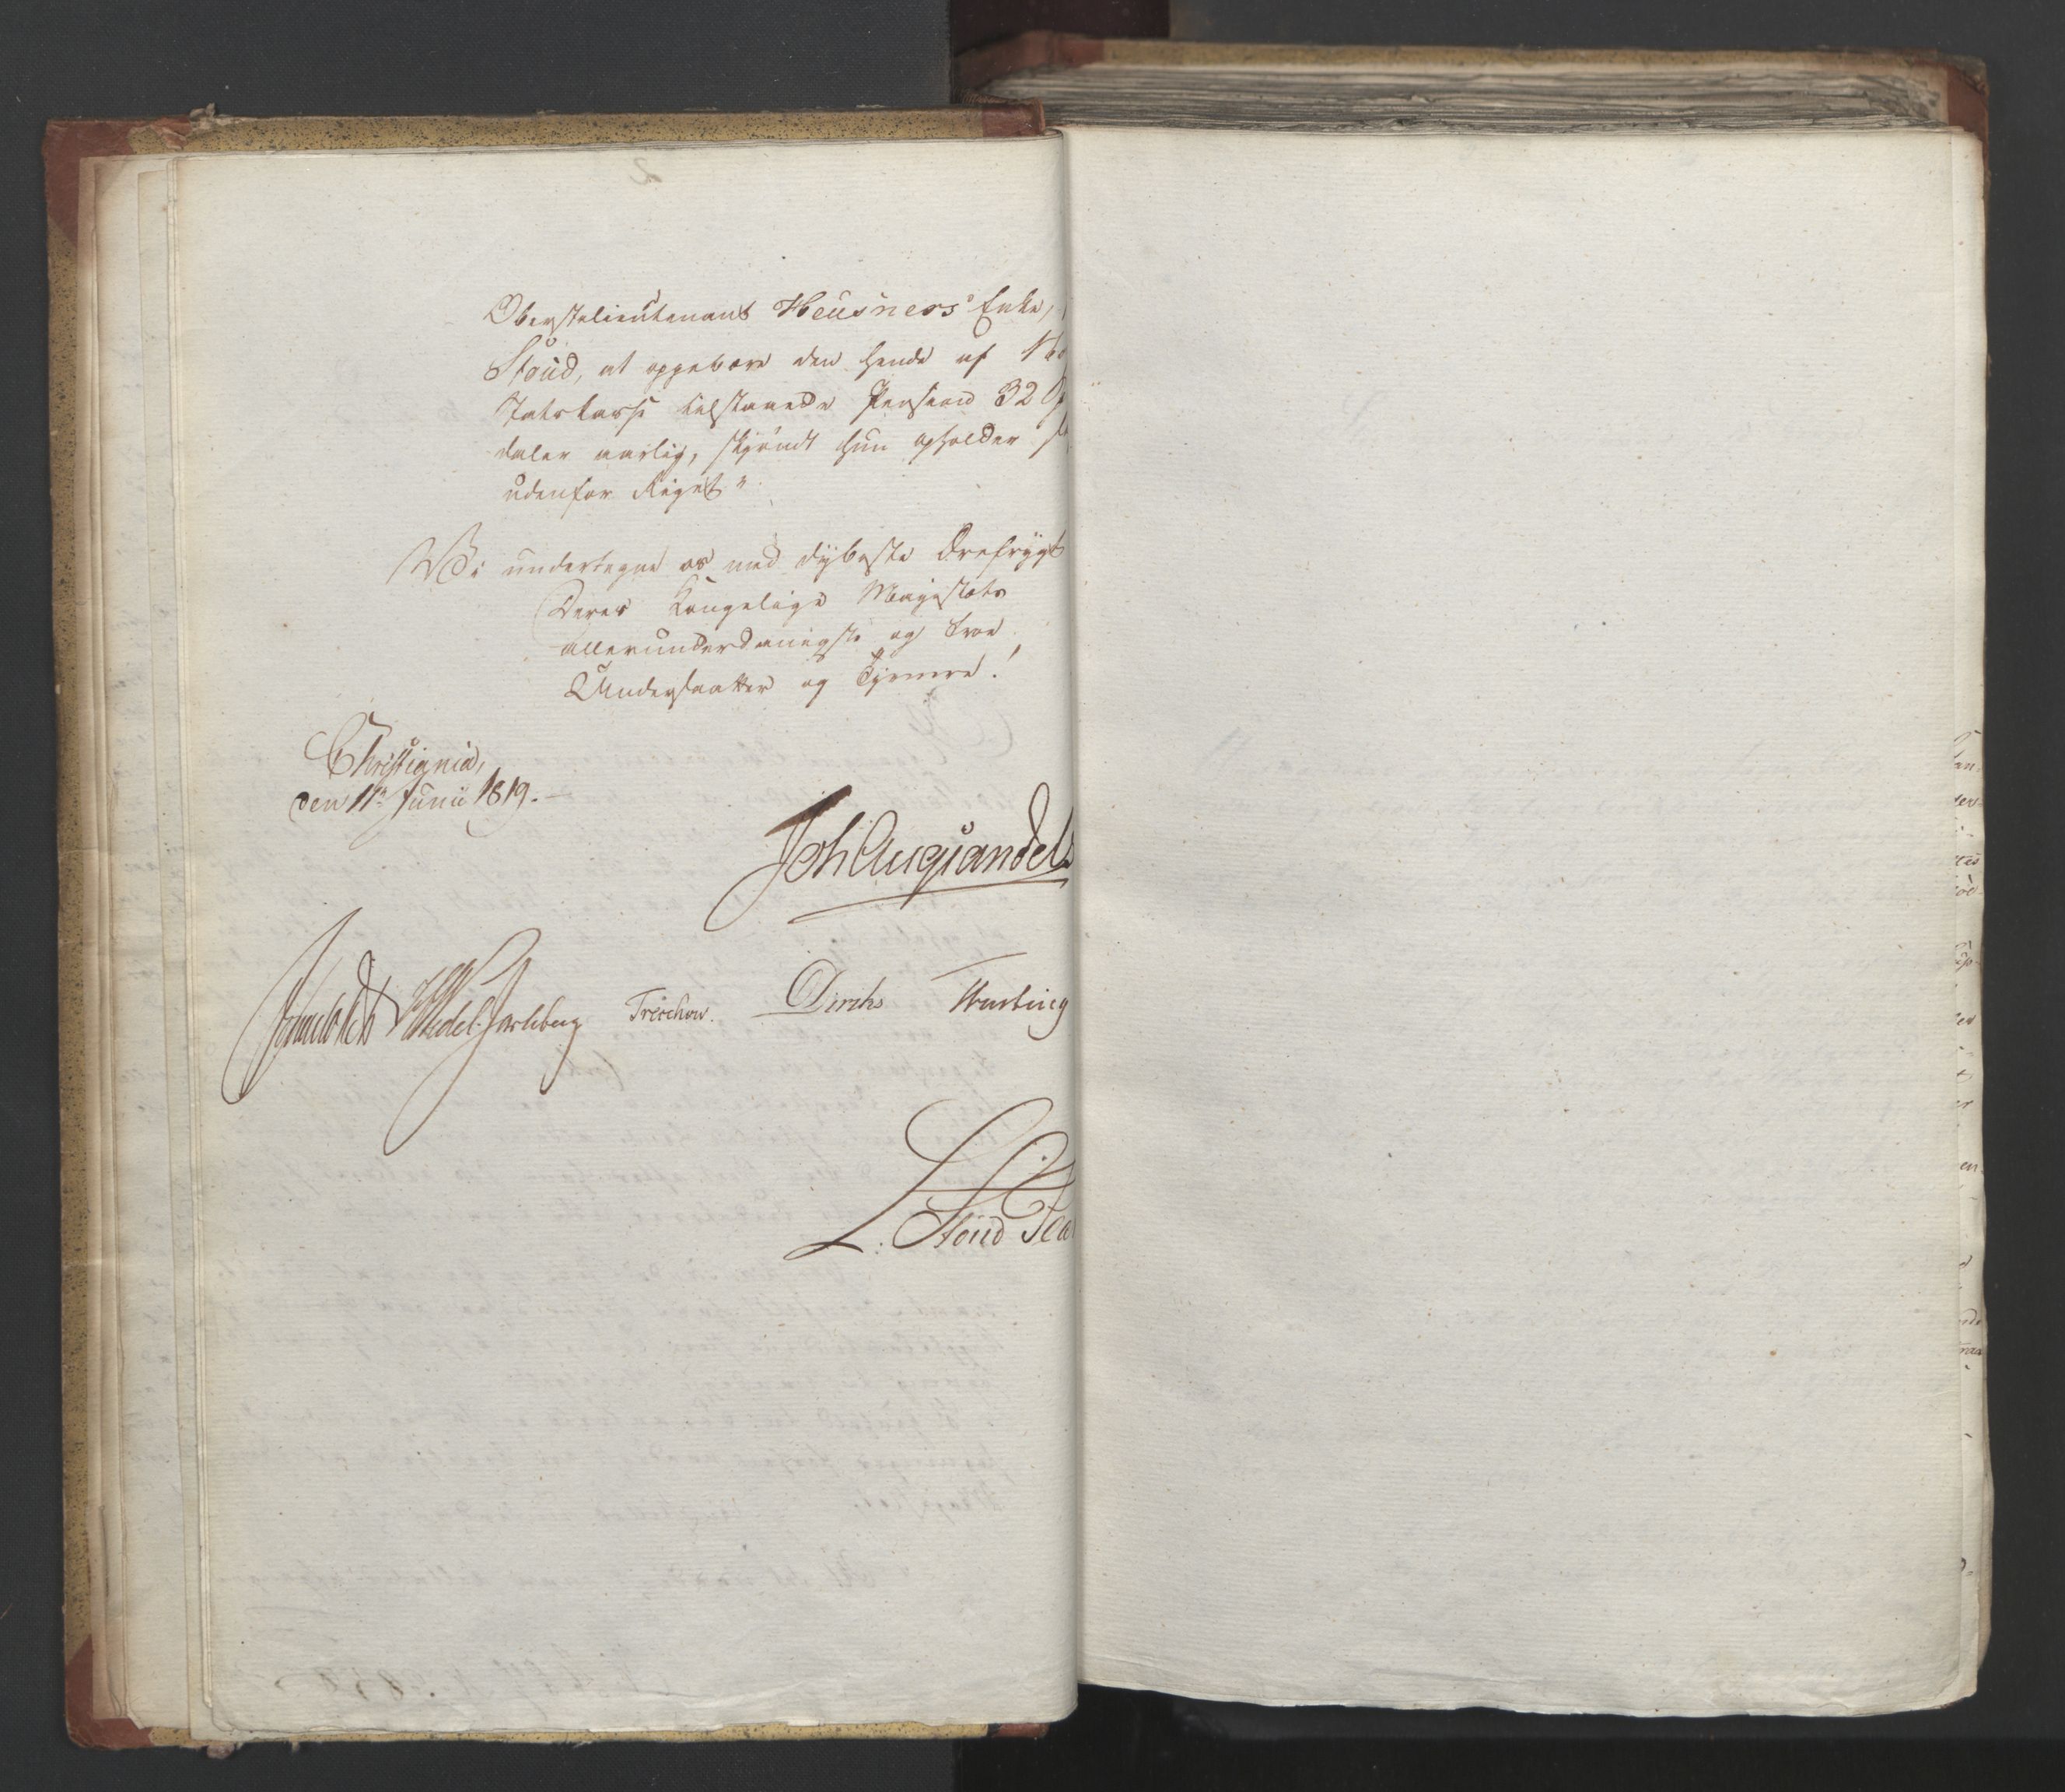 Oberstelieutenant Heusners Enke,
Stoud, at oppebære den hende af
Statskassen tilstaaede Pension 32
daler aarlig, skjöndt hun opholder
udenfor Riget".
Vi undertegne os med dybeste Ærefrygt
Deres Kongelige Majestæts
allerunderdanigste og troe
Undersaatter og Tjenere!
Christiania,
den 11te Junii 1819.
Joh Aug Sandels
Sommerhielm HWedel-Jarlsberg Treschow. Diriks Hvasting
L: Stoud